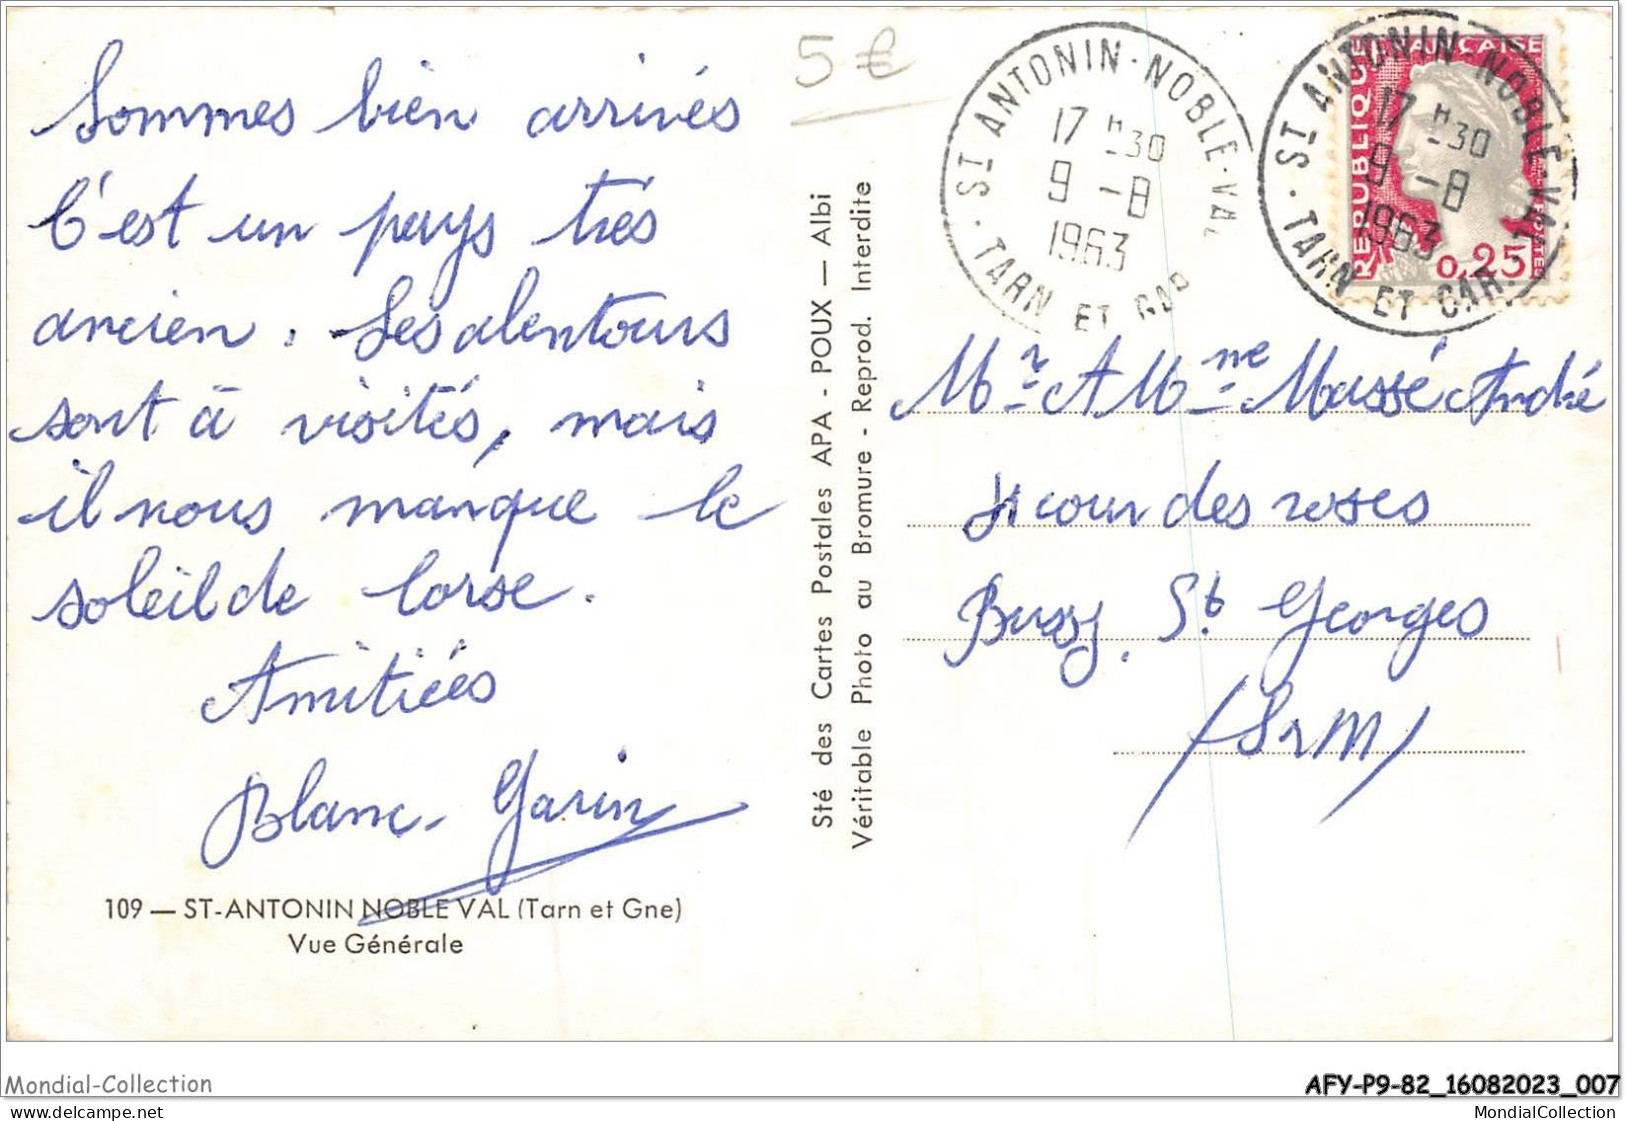 Sommes bien arrivés
C'est un pays très
ancien. Les alentours
sont à visités, mais
il nous manque le
soleil de Corse.
Amitiées
Blanc-Garin
109 — ST-ANTONIN NOBLE VAL (Tarn et Gne)
Vue Générale
5 €
Sté des Cartes Postales APA - POUX — Albi
Véritable Photo au Bromure - Reprod. Interdite
ST ANTONIN-NOBLE-VAL
17 H 30
9 - 8
1963
TARN ET GAR
ST ANTONIN-NOBLE-VAL
17 H 30
9 - 8
1963
TARN ET GAR.
REPUBLIQUE FRANÇAISE
0,25
Mr A Mme Massé André
cour des roses
Bussy. St Georges
(S et M)
Mondial-Collection
AFY-P9-82_16082023_007
delcampe.net
MondialCollection